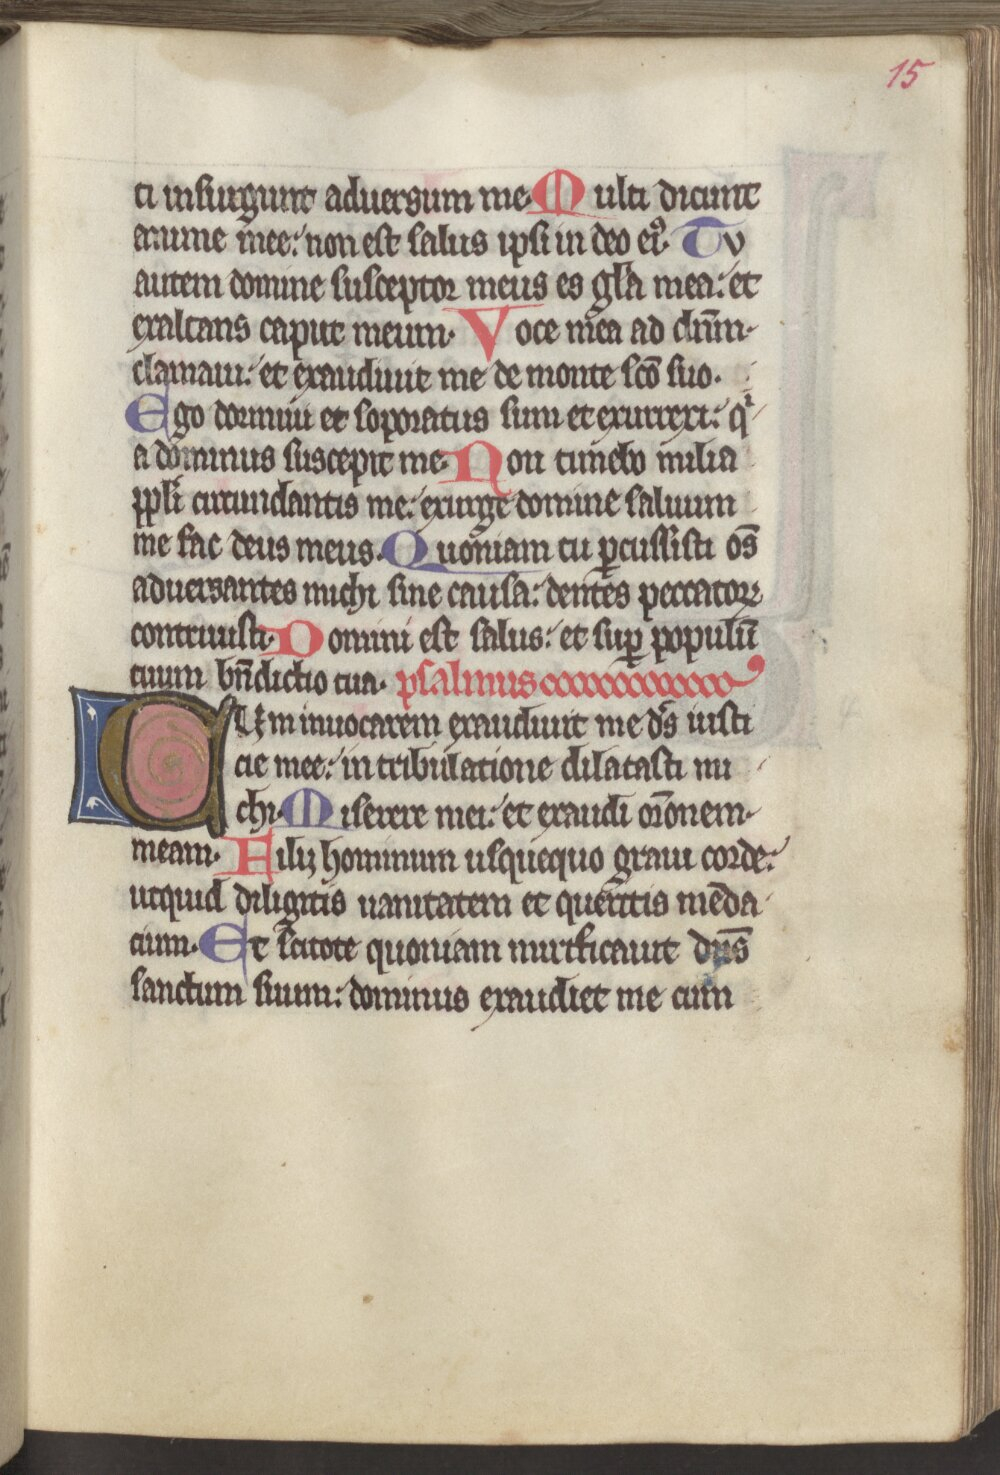 15
ti insurgunt aduersum me. Multi dicunt
anime mee: non est salus ipsi in deo eiꝰ. Tu
autem domine susceptor meus es gl̄a mea: et
exaltans caput meum. Voce mea ad dn̄m
clamaui: et exaudiuit me de monte sc̄o suo.
Ego dormiui et soporatus sum et exurrexi: qi
a dominus suscepit me. Non timebo milia
ppl̄i circundantis me: exurge domine saluum
me fac deus meus. Quoniam tu ꝑcussisti om̄s
aduersantes michi sine causa: dentes peccatoꝝ
contriuisti. Domini est salus: et suꝑ populū
tuum bn̄dictio tua. psalmus
CUm inuocarem exaudiuit me ds̄ iusti
cie mee: in tribulatione dilatasti mi
chi. Miserere mei: et exaudi or̄onem
meam. Filij hominum usquequo graui corde:
utquid diligitis uanitatem et queritis mēda
cium. Et scitote quoniam mirificauit dn̄s
sanctum suum: dominus exaudiet me cum